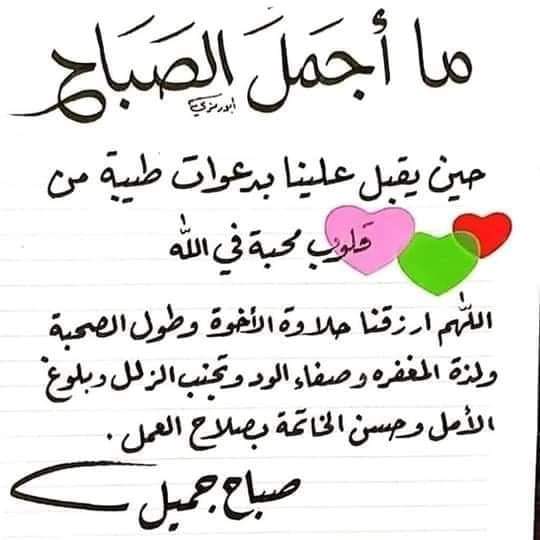 ما أجمَلَ الصَبَاح
ابو رمزي
حين يقبل علينا بدعوات طيبة من
قلوب محبة في الله
اللهم ارزقنا حلاوة الأخوة وطول الصحبة
ولذة المغفره وصفاء الود وتجنب الزلل وبلوغ
الأمل وحسن الخاتمة بصلاح العمل .
صباح جميل